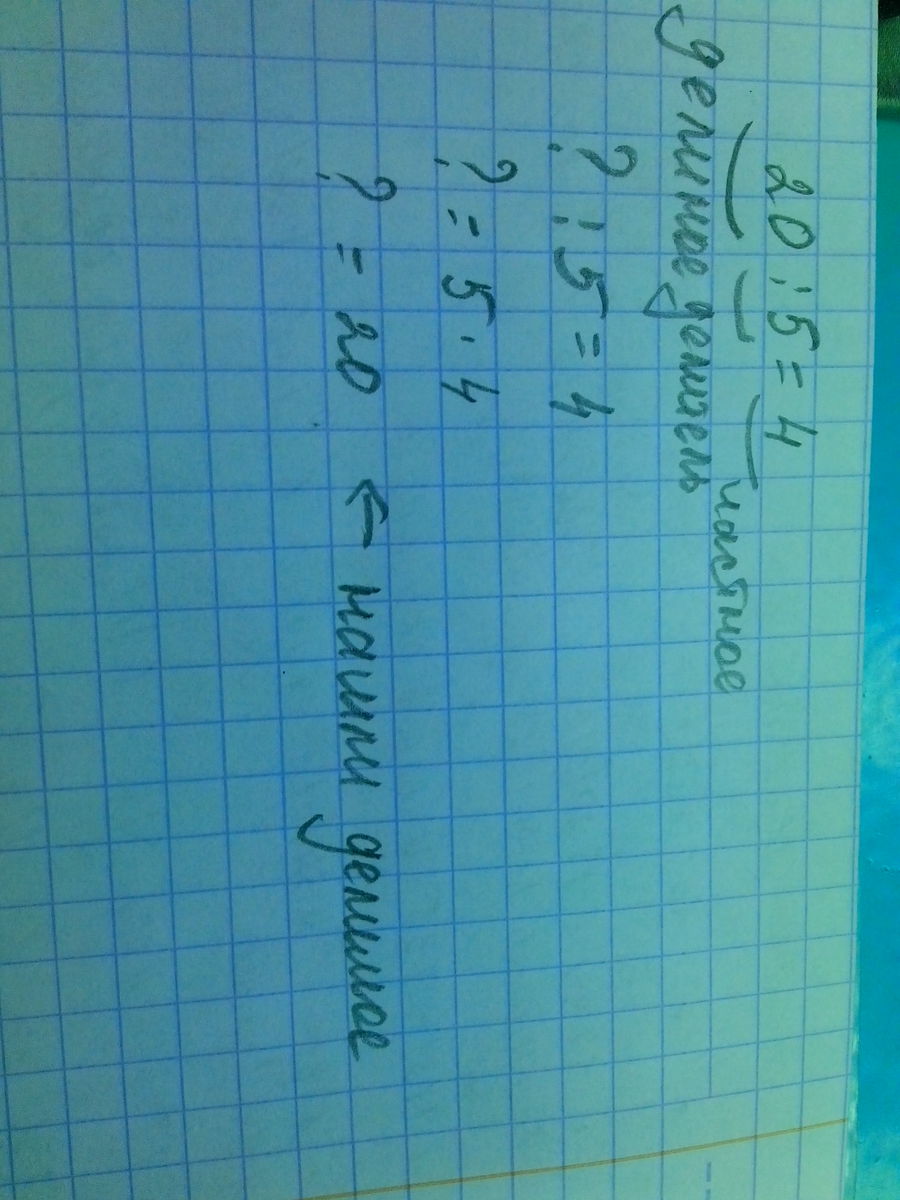 20 : 5 = 4
частное
делимое делитель
? : 5 = 4
? = 5 · 4
? = 20 ← нашли делимое